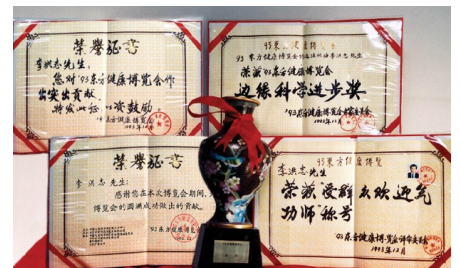 荣誉证书
李洪志先生:
您对'93东方健康博览会作
出突出贡献,
特发此证 以资鼓励。
'93东方健康博览会
1993年12月
93东方健康博览会
李洪志先生
荣获'93东方健康博览会
边缘科学进步奖
'93东方健康博览会
1993年12月
荣誉证书
李洪志先生:
感谢您在本次博览会期间,
博览会的圆满成功做出的贡献。
93东方健康博览会
93东方健康博览
李洪志先生
荣获受群众欢迎气
功师称号
93东方健康博览会评奖委员会
1993年12月